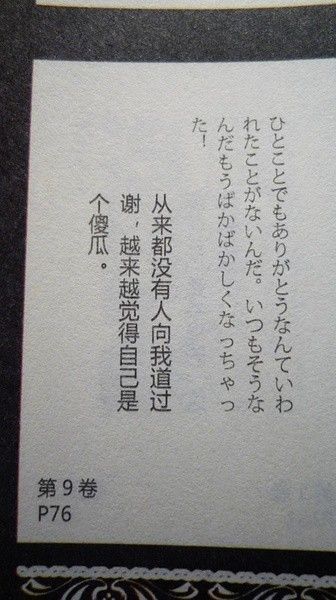 ひとことでもありがとうなんていわ
れたことがないんだ。いつもそうな
んだもうばかばかしくなっちゃっ
た!
从来都没有人向我道过
谢，越来越觉得自己是
个傻瓜。
第9卷
P76